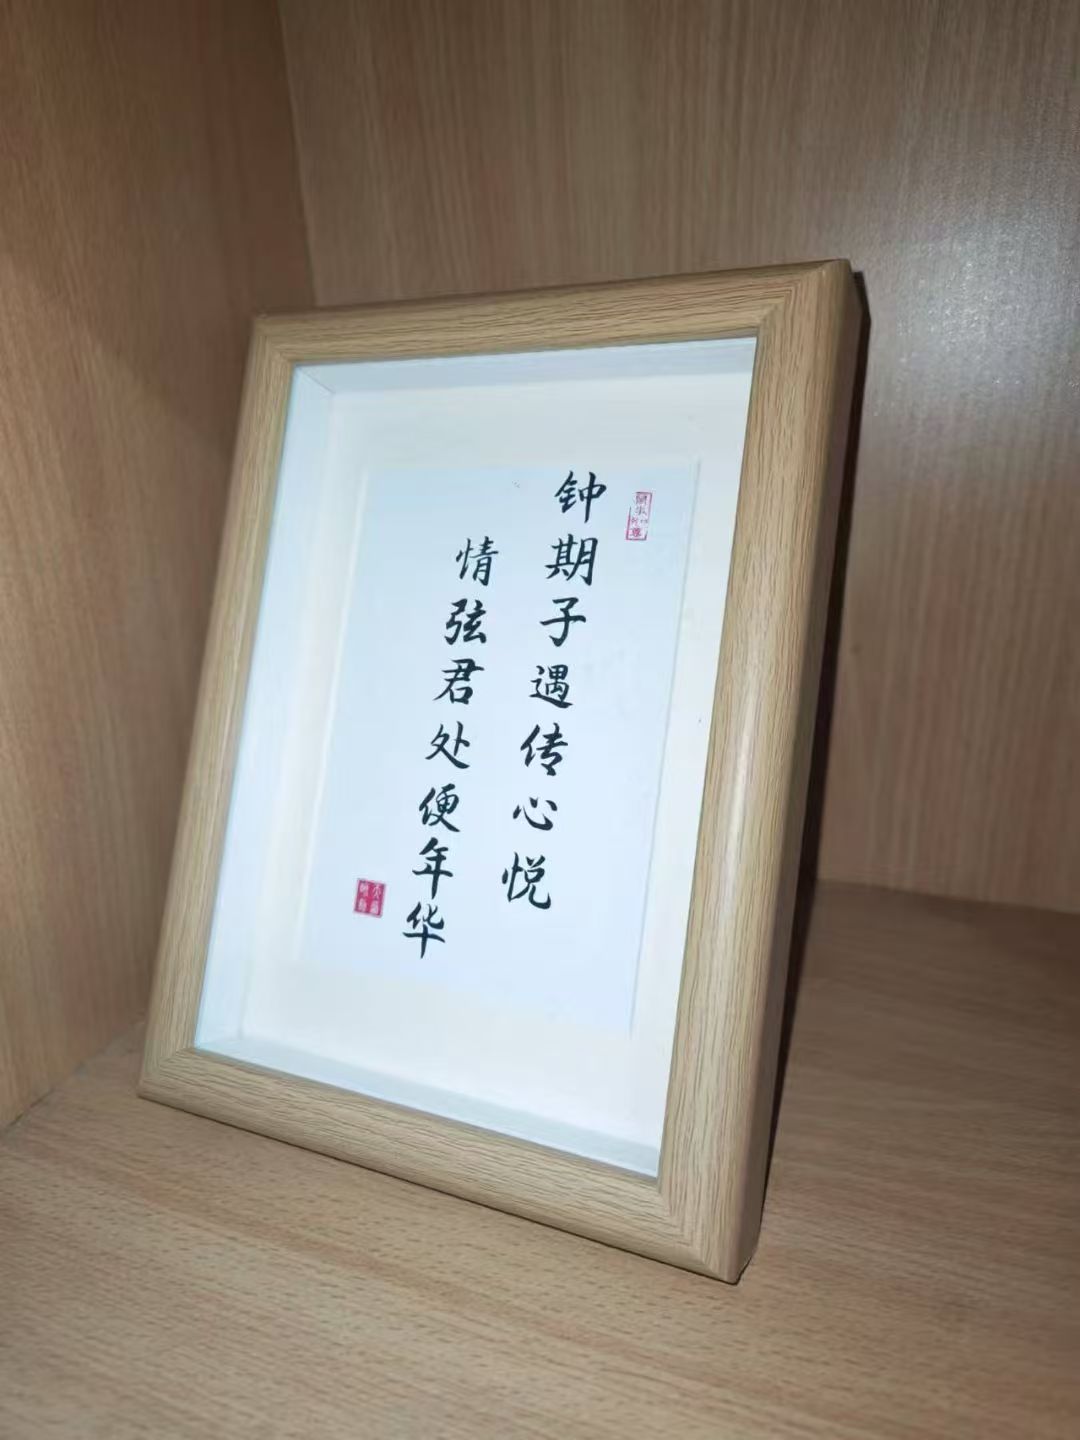 钟期子遇传心悦
情弦君处便年华